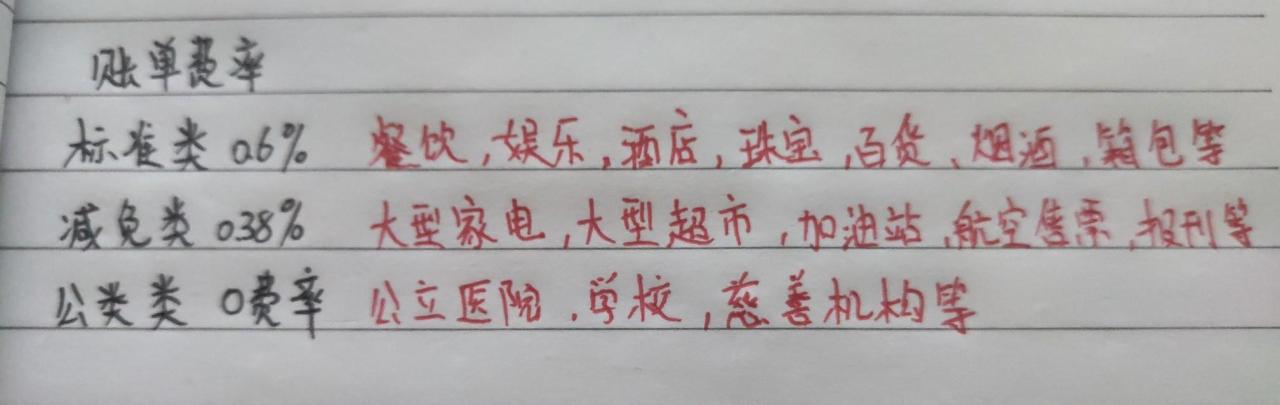 账单费率
标准类 0.6% 餐饮,娱乐,酒店,珠宝,百货、烟酒,箱包等
减免类 0.38% 大型家电,大型超市,加油站,航空售票,报刊等
公类类 0费率 公立医院,学校,慈善机构等